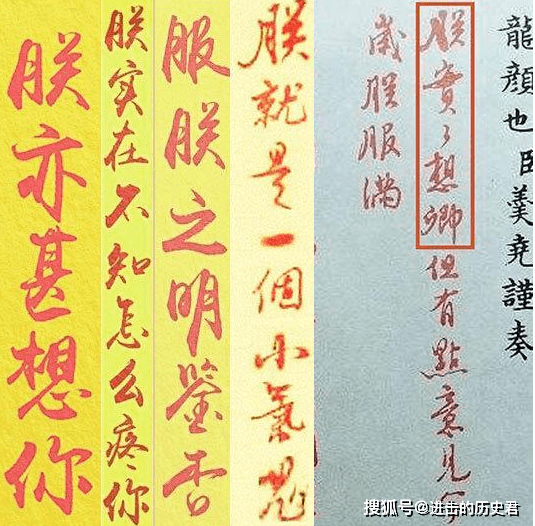 朕亦甚想你
朕实在不知怎么疼你
服朕之明鉴否
朕就是一個小氣鬼
龍顏也臣羹堯謹奏
朕實々想卿但有點意見
歲朕服滿
搜狐号@进击的历史君